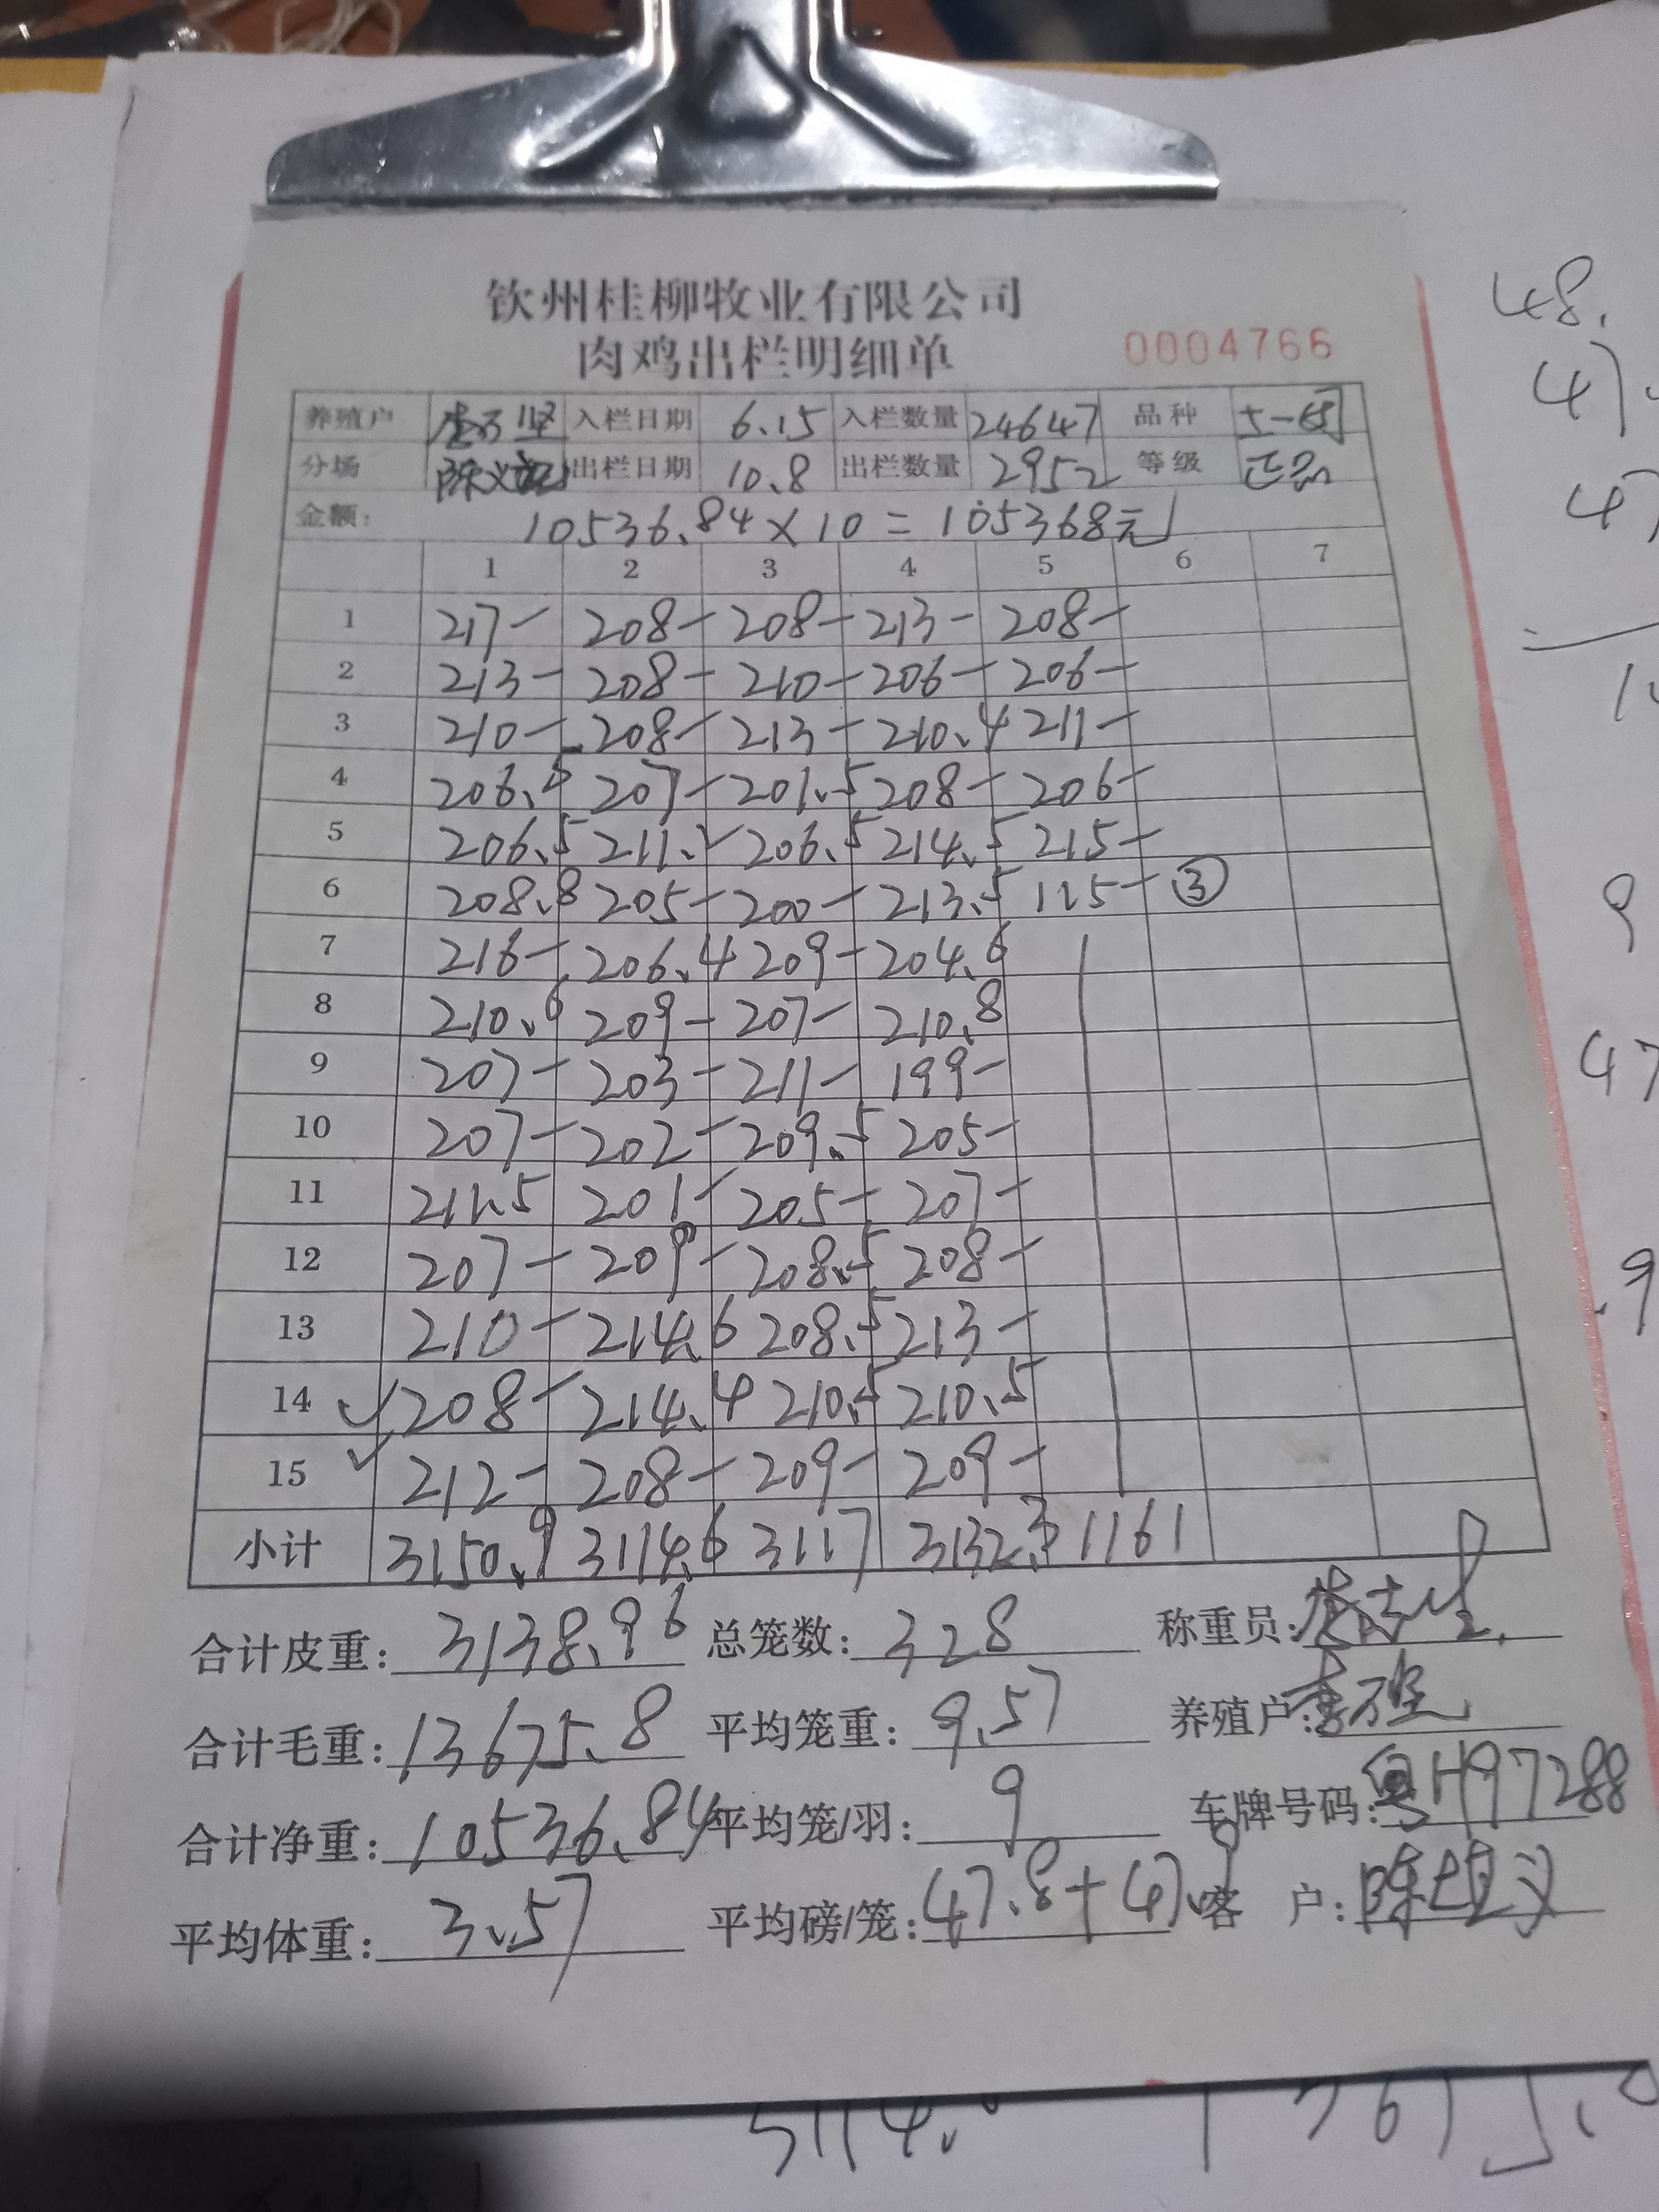 钦州桂柳牧业有限公司
肉鸡出栏明细单 0004766
养殖户 入栏日期 6.15 入栏数量 24647 品种
分场 陈义 出栏日期 10.8 出栏数量 2952 等级 正品
金额: 10536.84×10=105368元
1 2 3 4 5 6 7
1 217- 208- 208- 213- 208-
2 213- 208- 210- 206- 206-
3 210- 208- 213- 210.4 211-
4 206.5 207- 201.5 208- 206-
5 206.5 211.2 206.5 214.5 215-
6 208.8 205- 200- 213.5 115- ③
7 216- 206.4 209- 204.6
8 210.6 209- 207- 210.8
9 207- 203- 211- 199-
10 207- 202- 209.5 205-
11 211.5 201- 205- 207-
12 207- 209- 208.5 208-
13 210- 214.6 208.5 213-
14 208- 214.4 210.5 210.5
15 212- 208- 209- 209-
小计 3150.9 3114.6 3117 3132.3 1161
合计皮重: 3138.96 总笼数: 328 称重员:
合计毛重: 13675.8 平均笼重: 9.57 养殖户:
合计净重: 10536.84 平均笼/羽: 9 车牌号码: 粤H97288
平均体重: 3.57 平均磅/笼: 47.8+47.9 客 户: 陈
48.
47
47
9
47
3114.
13675.8